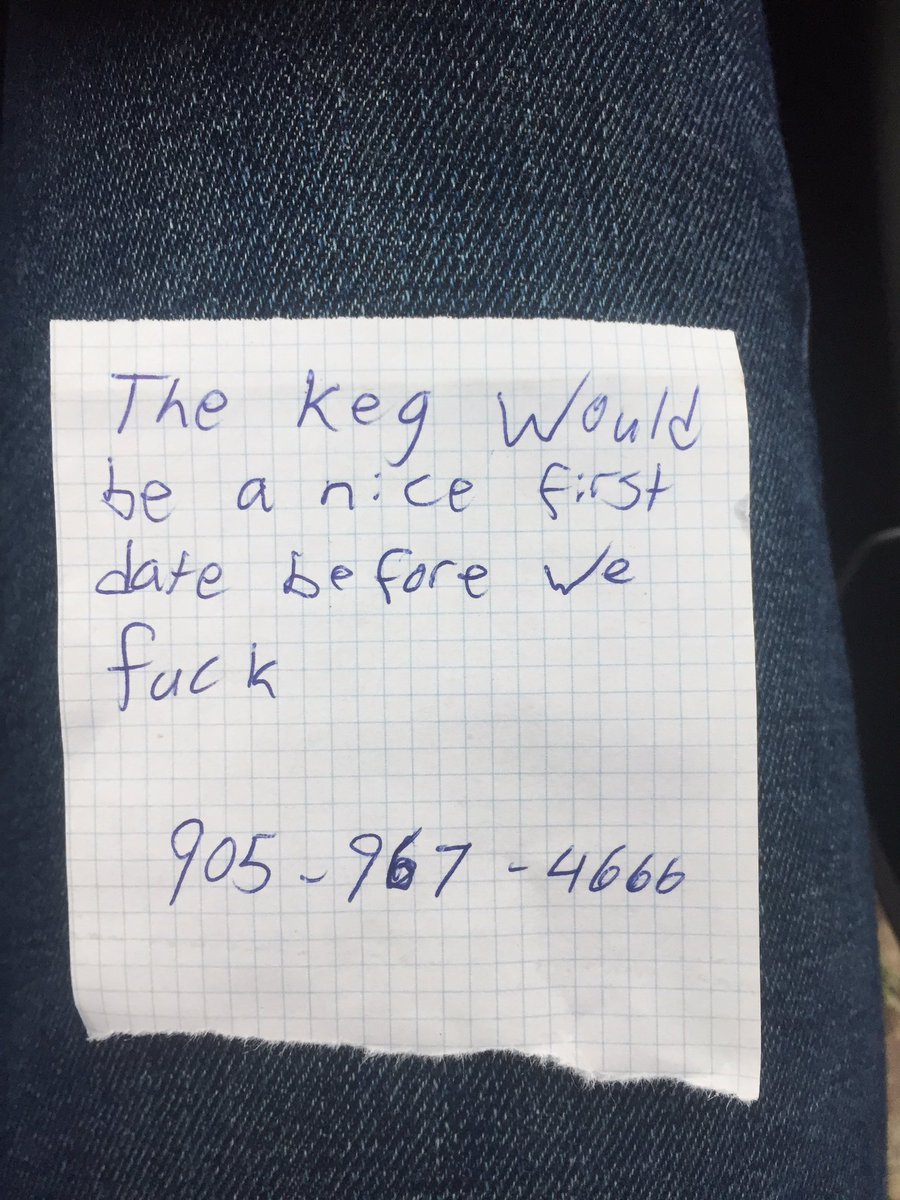 The keg Would
be a nice first
date before we
fuck
905-967-4666